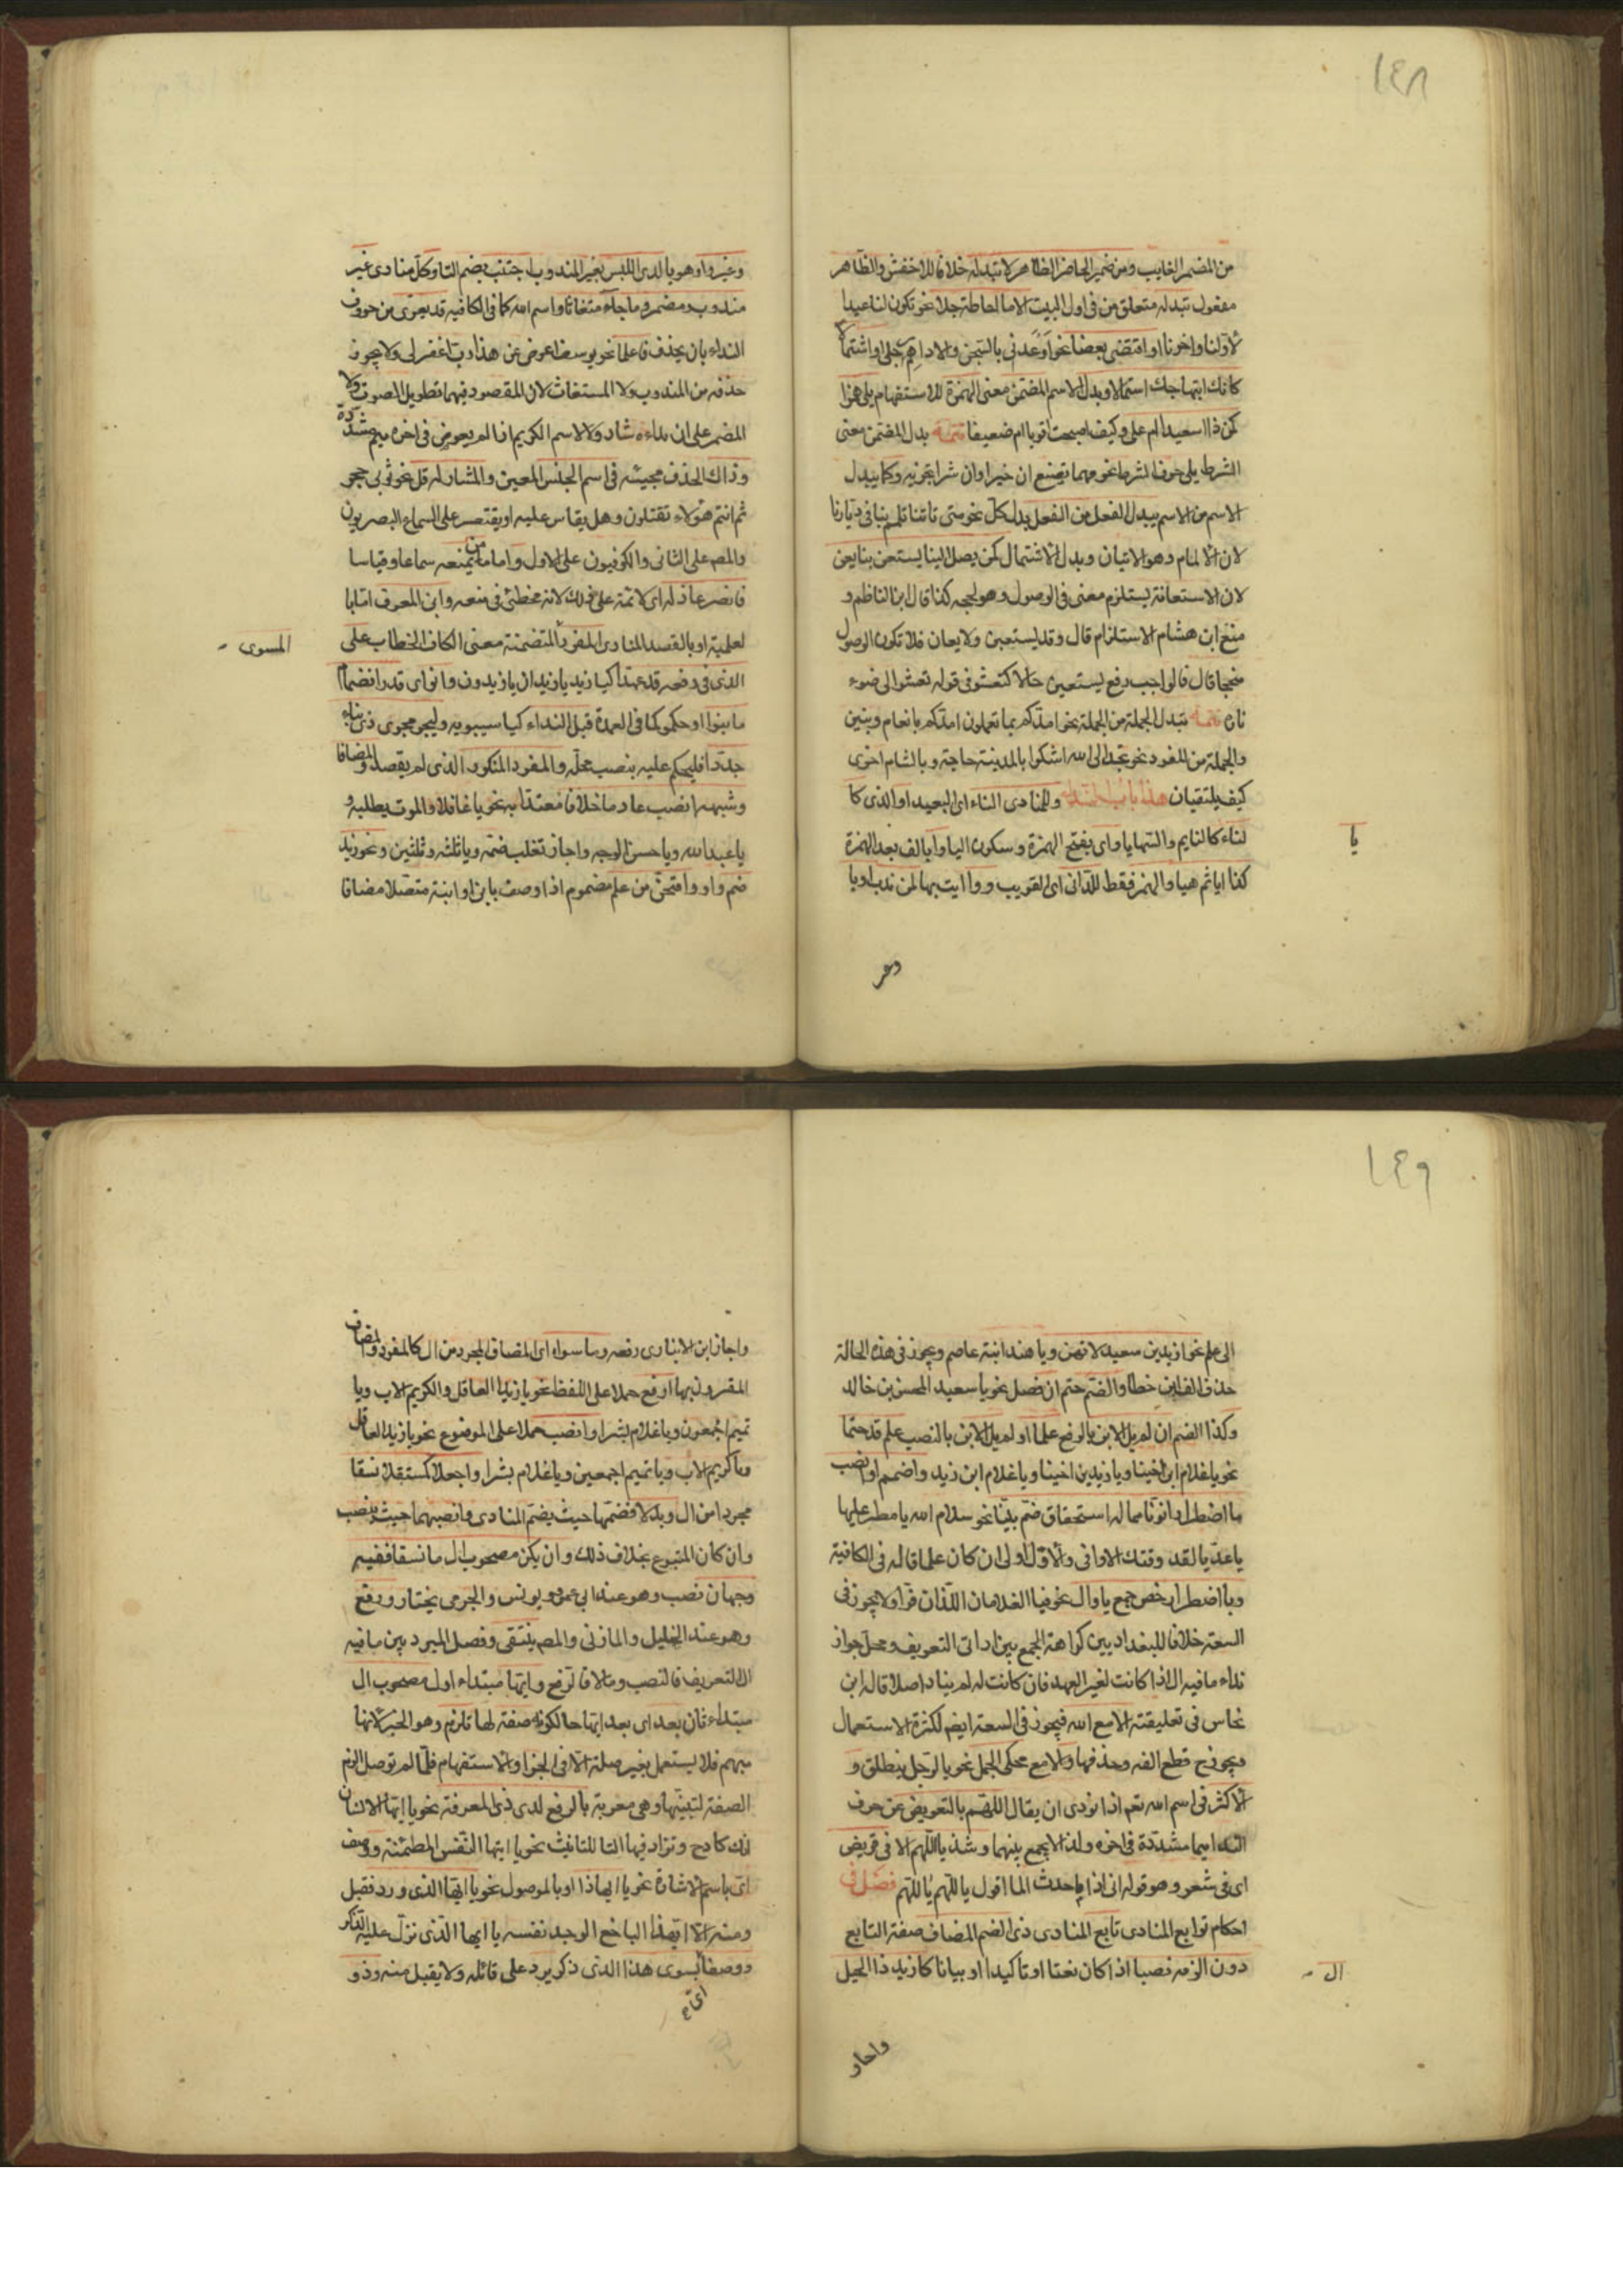 ١٤٨
من المضمر الغايب ومن ضمير الحاضر الظاهر لا تبدله خلافا للاخفش والظاهر
مفعول تبدله متعلق من فى اول البيت الا ما احاطة جلا نحو تكون لنا عيدا
لاولنا واخرنا او اقتضى بعضا نحو اوعدنى بالسجن والاداهم رجلى او اشتمالا
كانك ابتهاجك استمالا وبدل الاسم المضمن معنى الهمزة للاستفهام يلى همزا
كمن ذا اسعيد ام على وكيف اصبحت اقويا ام ضعيفا تتمة بدل المضمن معنى
الشرط يلى حرف الشرط نحو مهما تصنع ان خيرا وان شرا تجز به وكما يبدل
الاسم من الاسم يبدل الفعل من الفعل بدل كل نحو متى تاتنا تلمم بنا فى ديارنا
لان الالمام وهو الاتيان وبدل الاشتمال كمن يصل الينا يستعن بنا يعن
لان الاستعانة يستلزم معنى فى الوصول وهو نجحه كذا قال ابن الناظم و
منع ابن هشام الاستلزام قال وقد يستعين ولا يعان فلا تكون الوصول
منجحا قال فالواجب رفع يستعين حالا كتعشو فى قوله تعشوا الى ضوء
ناره تتمة تبدل الجملة من الجملة نحو امدكم بما تعلمون امدكم بانعام وبنين
والجملة من المفرد نحو الى الله اشكوا بالمدينة حاجة وبالشام اخرى
كيف يلتقيان هذا باب النداء وللمنادى الناء اى البعيد او الذى كا
لناء كالنايم والساهى يا واى بفتح الهمزة وسكون اليا وا بالف بعد الهمزة
كذا ايا ثم هيا والهمز فقط للدانى اى القريب ووا ايت بها لمن ندب او يا
يا
وغير
وغير وا وهو يا لدى اللبس بغير المندوب اجتنب بضم التا وكل منادى غير
مندوب ومضمر وما جاء مستغاثا واسم الله كما فى الكافيه قد يعرى من حروف
النداء بان يحذف فاعلما نحو يوسف اعرض عن هذا رب اغفر لى ولا يجوز
حذفه من المندوب ولا المستغاث لان المقصود فيهما تطويل الصوت ولا
المضمر على ان نداءه شاذ ولا الاسم الكريم اذا لم يعوض فى اخره ميم مشددة
وذاك الحذف مجيئه فى اسم الجنس المعين والمشار له قل نحو ثوبى حجر
ثم انتم هؤلاء تقتلون وهل يقاس عليه او يقتصر على السماع البصريون
والمص على الثانى والكوفيون على الاول واما من يمنعه سماعا وقياسا
فانصر عاذله اى لائمه على ذلك لانه مخطئ فى منعه وابن المعرف اما با
لعلمية او بالقصد المنادى المفرد المتضمنة معنى الكاف الخطاب على
المسوى
الذى فى رفعه قد عهدا كيا زيد يا زيدان يا زيدون وانو اى قدر انضمام
ما بنوا او حكموا كما فى العمدة قبل النداء كيا سيبويه وليجر مجرى ذى بناء
جددا فليحكم عليه بنصب محله والمفرد المنكور الذى لم يقصد والمضافا
وشبهه انصب عادما خلافا معتدا به نحو يا غافلا والموت يطلبه و
يا عبد الله ويا حسن الوجه واجاز تغلب ضمه ويا ثلثه وثلثين ونحو زيد
ضم واو وافتحن من علم مضموم اذا وصف بابن او ابنة متصلا مضافا
١٤٩
الى علم نحو ازيد بن سعيد لا تهن ويا هند ابنة عاصم ويجوز فى هذه الحالة
حذف الف ابن خطا والضم حتم ان فصل نحو يا سعيد المحسن بن خالد
وكذا الضم ان لم يل الابن بالرفع علما او لم يل الابن بالنصب علم قد حتما
نحو يا غلام ابن اخينا ويا زيد بن اخينا ويا غلام ابن زيد واضمم او انصب
ما اضطرارا نونا مما له استحقاق ضم بينا نحو سلام الله يا مطر عليها
يا عديا لقد وقتك الاواقى والاول اولى ان كان علما قاله فى الكافية
وباضطرار خص جمع يا وال نحو فيا الغلامان اللذان فرا ولا يجوز فى
السعة خلافا للبغداديين كراهة الجمع بين اداتى التعريف ومحل جواز
نداء ما فيه ال اذا كانت لغير العهد فان كانت له لم يناد اصلا قاله ابن
نحاس فى تعليقته الا مع الله فيجوز فى السعة ايضم لكثرة الاستعمال
ويجوز ح قطع الفه وحذفها والا مع محكى الجمل نحو يا الرجل ينطلق و
الاكثر فى اسم الله تعم اذا نودى ان يقال اللهم بالتعويض عن حرف
النداء ميما مشددة فى اخره ولذا لا يجمع بينهما وشذ يا اللهم الا فى قريض
اى فى شعر وهو قوله انى اذا ما حدث الما اقول يا اللهم يا اللهم فصل فى
احكام توابع المنادى تابع المنادى ذى الضم المضاف صفة التابع
دون الزمه نصبا اذا كان نعتا او تاكيدا او بيانا كازيد ذا الحيل
ال
واجاز
واجاز ابن الانبارى رفعه وما سواه اى المضاف المجرد من ال كالمفرد والمضاف
المقرون بها ارفع حملا على اللفظ نحو يا زيد العاقل والكريم الاب ويا
تميم اجمعون ويا غلام بشر او انصب حملا على الموضوع نحو يا زيد العاقل
والكريم الاب ويا تميم اجمعين ويا غلام بشرا واجعلا كمستقلا نسقا
مجردا من ال وبدلا فضمها حيث يضم المنادى وانصبهما حيث ينصب
وان كان المتبوع بخلاف ذلك وان يكن مصحوب ال ما نسقا ففيه
وجهان نصب وهو عند ابى عمرو ويونس والجرمى يختار ورفع
وهو عند الخليل والمازنى والمص ينتقى وفصل المبرد بين ما فيه
ال للتعريف فالنصب وما لا فالرفع وايها مبتداء اول مصحوب ال
مبتداء ثان بعد اى بعد ايها حالكونه صفة لها تلزم وهو الخبر لانها
مبهم فلا يستعمل بغير صلة الا فى الجزا والاستفهام فلما لم توصل الزم
الصفة لتبينها وهى معربة بالرفع لدى ذى المعرفة نحو يا ايها الانسان
انك كادح وتزاد فيها التا للتانيث نحو يا ايتها النفس المطمئنة ووصف
اى باسم الاشارة نحو يا ايهاذا او بالموصول نحو يا ايها الذى ورد فقبل
ومنه الا ايهذا الباخع الوجد نفسه يا ايها الذى نزل عليه الذكر
ووصف اى بسوى هذا الذى ذكر يرد على قائله ولا يقبل منه وذو